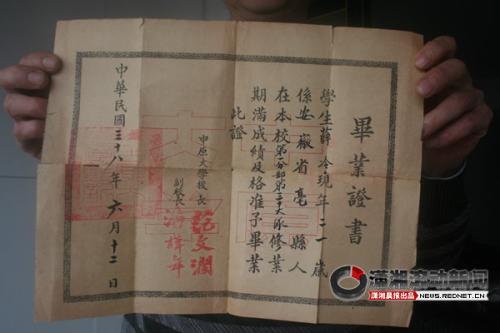 畢業證書
學生薛冷現年二一歲
係安徽省亳縣人
在本校第一分部第三十大隊修業
期滿成績及格准予畢業
此證
中原大學校長 范文瀾
副校長 潘梓年
中華民國三十八年六月十二日
瀟湘滚动新闻
潇湘晨报出品 NEWS.REDNET.CN